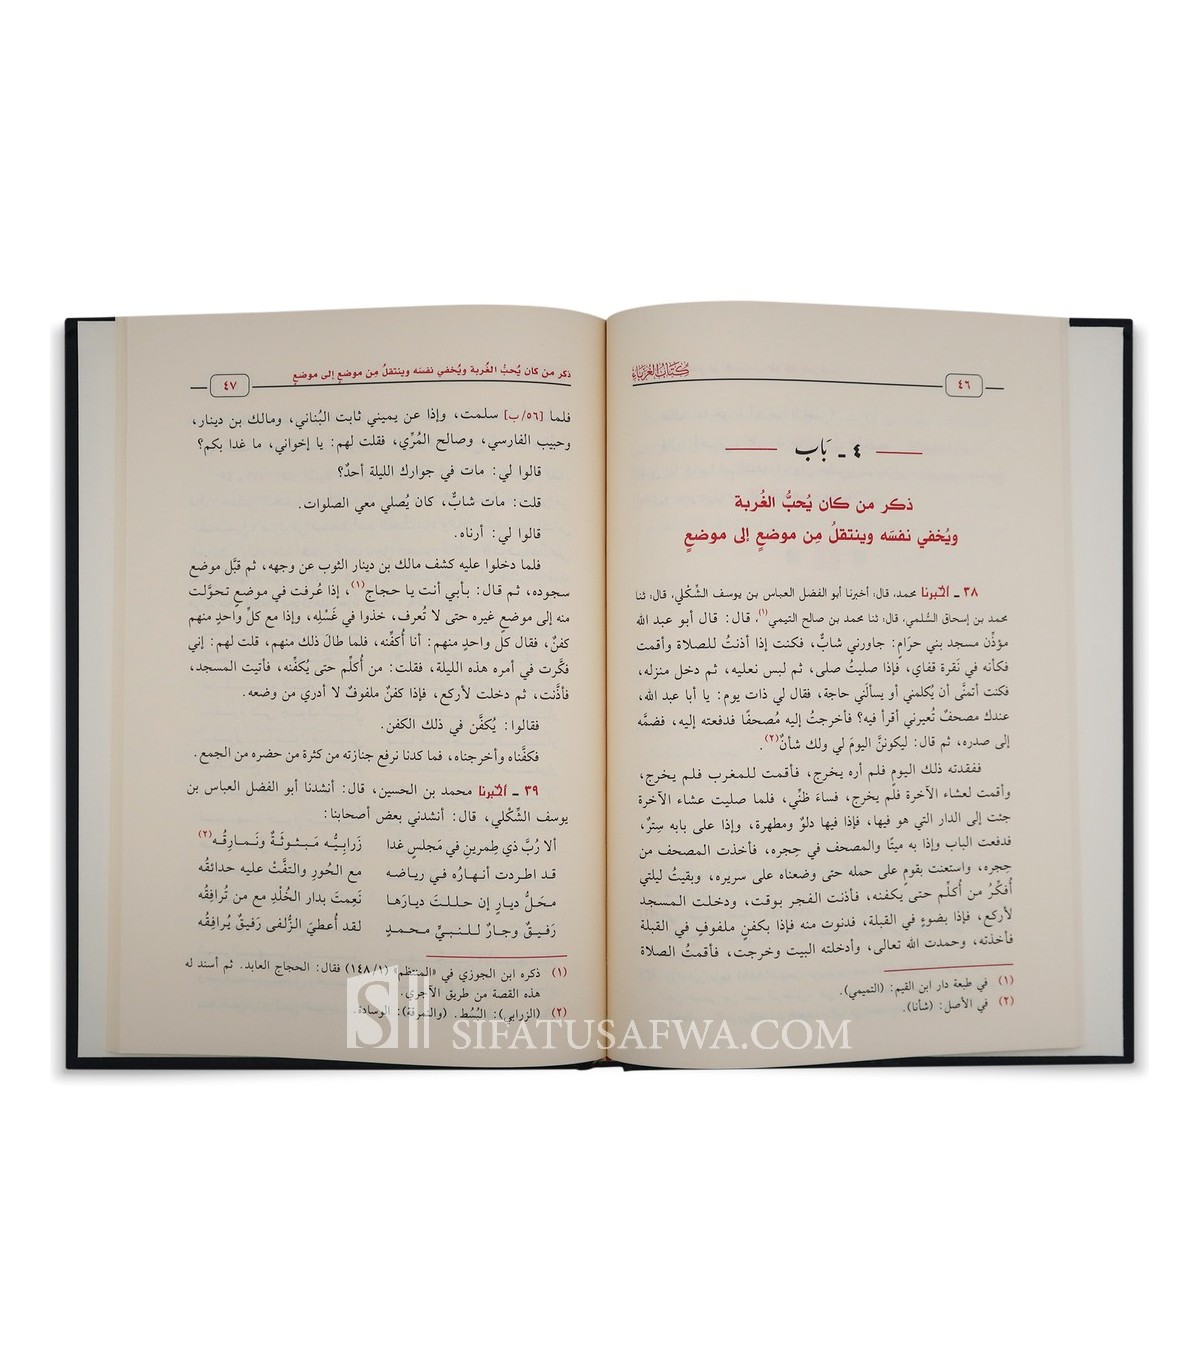 كتاب الغرباء
٤٦
٤ ـ بَاب
ذكر من كان يُحبُّ الغُربة
ويُخفي نفسَه وينتقلُ مِن موضعٍ إلى موضعٍ
٣٨ ـ أخبرنا محمد، قال: أخبرنا أبو الفضل العباس بن يوسف الشِّكْلي، قال: ثنا
محمد بن إسحاق السُّلمي، قال: ثنا محمد بن صالح التيمي(١)، قال: قال أبو عبد الله
مؤذِّن مسجد بني حرَامٍ: جاورني شابٌّ، فكنت إذا أذنتُ للصلاة وأقمت
فكأنه في نَقرة قفاي، فإذا صليتُ صلى، ثم لبس نعليه، ثم دخل منزله،
فكنت أتمنَّى أن يُكلمني أو يسألَني حاجة، فقال لي ذات يوم: يا أبا عبد الله،
عندك مصحفٌ تُعيرني أقرأ فيه؟ فأخرجتُ إليه مُصحفًا فدفعته إليه، فضمَّه
إلى صدره، ثم قال: ليكوننَّ اليومَ لي ولك شأنٌ(٢).
ففقدته ذلك اليوم فلم أره يخرج، فأقمت للمغرب فلم يخرج،
وأقمت لعشاء الآخرة فلم يخرج، فساءَ ظنِّي، فلما صليت عشاء الآخرة
جئت إلى الدار التي هو فيها، فإذا فيها دلوٌ ومطهرة، وإذا على بابه سِترٌ،
فدفعت الباب وإذا به ميتًا والمصحف في حِجره، فأخذت المصحف من
حِجره، واستعنت بقومٍ على حمله حتى وضعناه على سريره، وبقيتُ ليلتي
أُفكِّرُ من أُكلِّم حتى يكفنه، فأذنت الفجر بوقت، ودخلت المسجد
لأركع، فإذا بضوءٍ في القبلة، فدنوت منه فإذا بكفنٍ ملفوفٍ في القبلة
فأخذته، وحمدت الله تعالى، وأدخلته البيت وخرجت، فأقمتُ الصلاة
(١) في طبعة دار ابن القيم: (التميمي).
(٢) في الأصل: (شأنا).
ذكر من كان يُحبُّ الغُربة ويُخفي نفسَه وينتقلُ مِن موضعٍ إلى موضعٍ
٤٧
فلما [٥٦/ب] سلمت، وإذا عن يميني ثابت البُناني، ومالك بن دينار،
وحبيب الفارسي، وصالح المُرِّي، فقلت لهم: يا إخواني، ما غدا بكم؟
قالوا لي: مات في جوارك الليلة أحدٌ؟
قلت: مات شابٌّ، كان يُصلي معي الصلوات.
قالوا لي: أرناه.
فلما دخلوا عليه كشف مالك بن دينار الثوب عن وجهه، ثم قبَّل موضع
سجوده، ثم قال: بأبي أنت يا حجاج(١)، إذا عُرفت في موضعٍ تحوَّلت
منه إلى موضعٍ غيره حتى لا تُعرف، خذوا في غَسْلِه، وإذا مع كلِّ واحدٍ منهم
كفنٌ، فقال كل واحدٍ منهم: أنا أُكفِّنه، فلما طالَ ذلك منهم، قلت لهم: إني
فكَّرت في أمره هذه الليلة، فقلت: من أُكلِّم حتى يُكفِّنه، فأتيت المسجد،
فأذَّنت، ثم دخلت لأركع، فإذا كفنٌ ملفوفٌ لا أدري من وضعه.
فقالوا: يُكفَّن في ذلك الكفن.
فكفَّناه وأخرجناه، فما كدنا نرفع جنازته من كثرة من حضره من الجمع.
٣٩ ـ أخبرنا محمد بن الحسين، قال: أنشدنا أبو الفضل العباس بن
يوسف الشِّكْلي، قال: أنشدني بعض أصحابنا:
ألا رُبَّ ذي طِمرينِ في مَجلسٍ غدا زَرابِيُّه مَبثوثَةٌ ونَمارِقُه(٢)
قد اطردت أنهارُه في رياضه مع الحُورِ والتفَّت عليه حدائقُه
محَلُّ ديارٍ إن حللتَ ديارَها نَعِمتَ بدار الخُلْدِ مع من تُرافِقُه
رَفيقٌ وجارٌ للنبيِّ محمدٍ لقد أُعطيَ الزُّلفى رَفيقٌ يُرافِقُه
(١) ذكره ابن الجوزي في «المنتظم» (١٤٨/١) فقال: الحجاج العابد. ثم أسند له
هذه القصة من طريق الآجري.
(٢) (الزرابي): البُسُط. (والنمرقة): الوسادة.
SIFATUSAFWA.COM